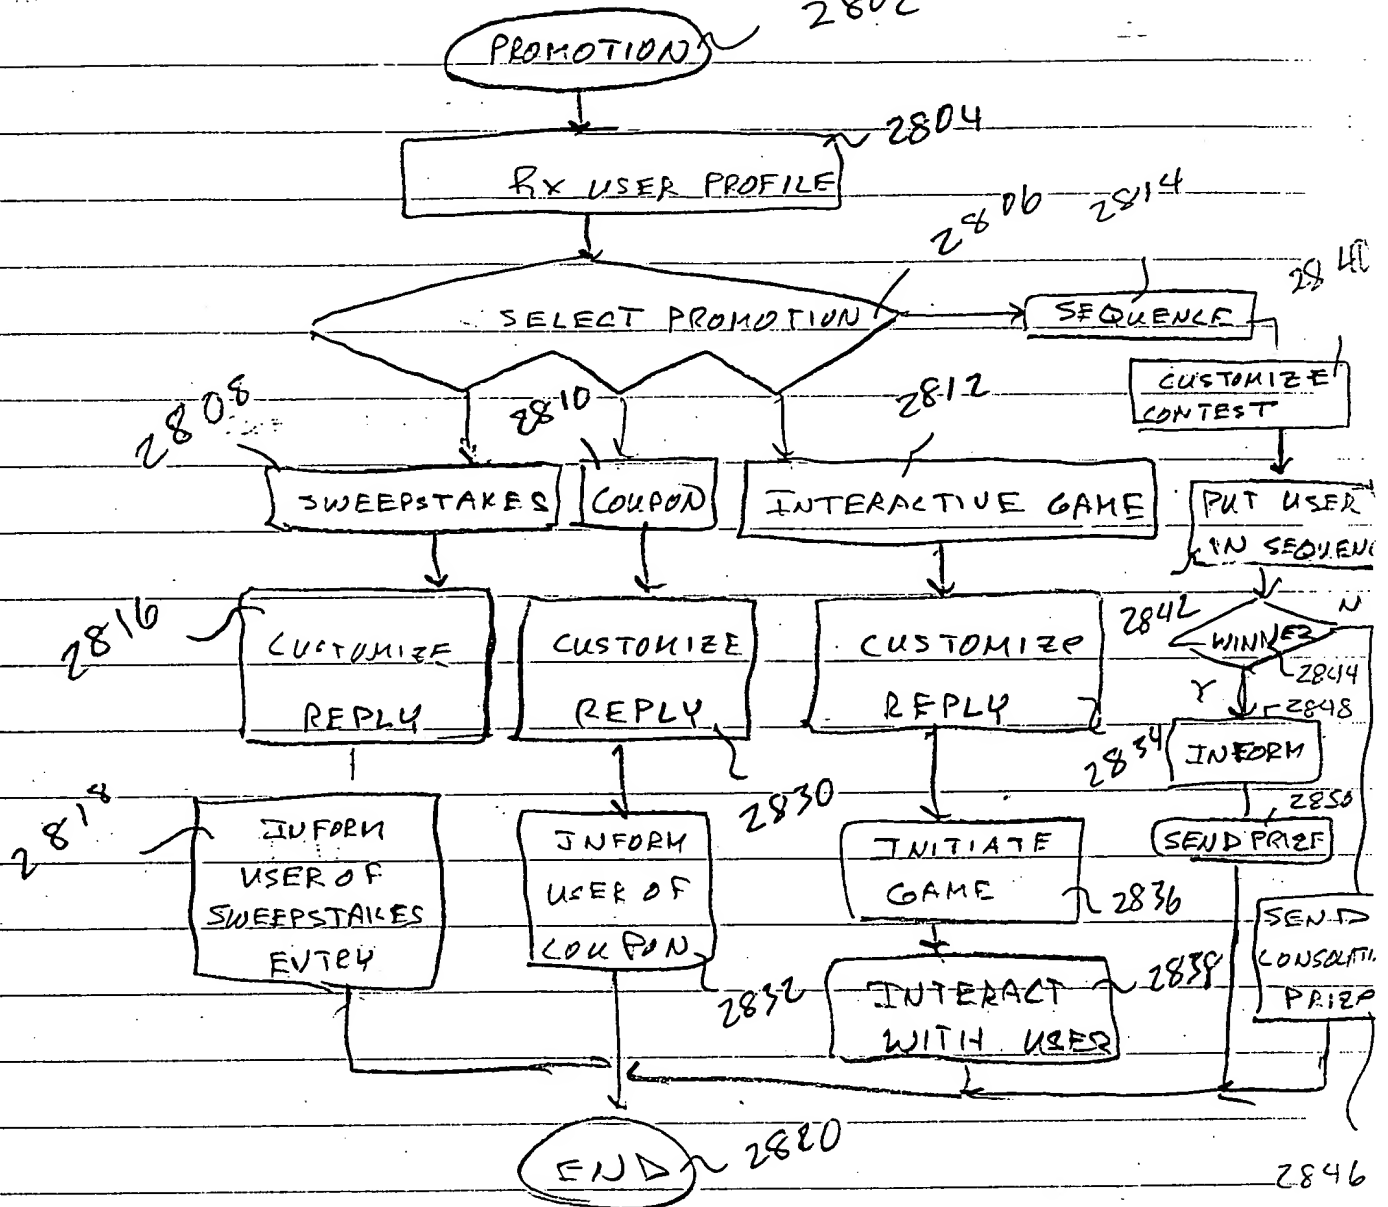 2802
PROMOTION
2804
Rx USER PROFILE
2806
2814
SELECT PROMOTION
SEQUENCE
CUSTOMIZE
CONTEST
2808
2810
2812
SWEEPSTAKES
COUPON
INTERACTIVE GAME
PUT USER
IN SEQUENC
2816
CUSTOMIZE
REPLY
CUSTOMIZE
REPLY
CUSTOMIZE
REPLY
2842
N
WINNER
2844
Y
2848
2834
INFORM
2830
2850
SEND PRIZE
2818
INFORM
USER OF
SWEEPSTAKES
ENTRY
INFORM
USER OF
COUPON
2832
INITIATE
GAME
2836
INTERACT
WITH USER
2838
SEND
CONSOLATI
PRIZE
END
2820
2846